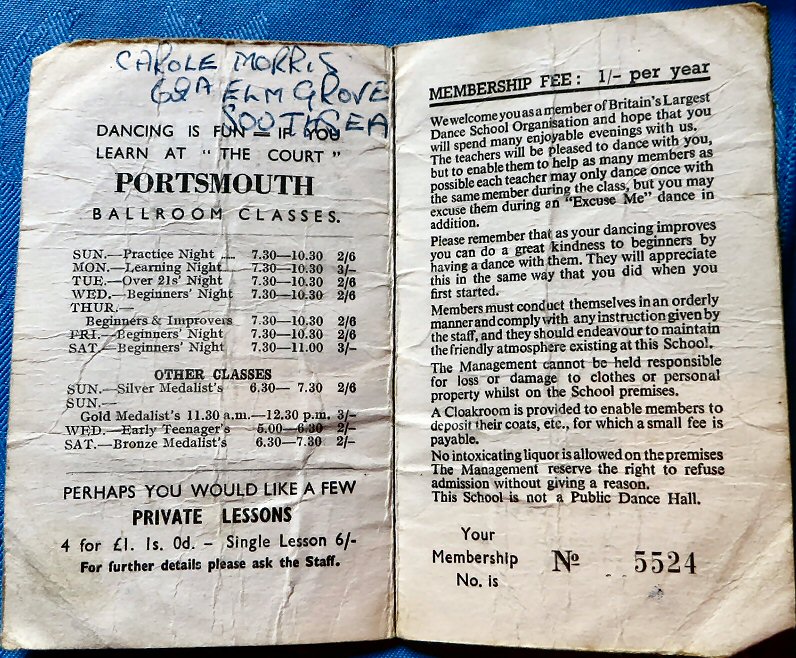 CAROLE MORRIS
68A ELM GROVE
SOUTHSEA
DANCING IS FUN — IF YOU
LEARN AT "THE COURT"
PORTSMOUTH
BALLROOM CLASSES.
SUN.—Practice Night .... 7.30—10.30 2/6
MON.—Learning Night 7.30—10.30 3/-
TUE.—Over 21s' Night 7.30—10.30 2/6
WED.—Beginners' Night 7.30—10.30 2/6
THUR.—
Beginners & Improvers 7.30—10.30 2/6
FRI.—Beginners' Night 7.30—10.30 2/6
SAT.—Beginners' Night 7.30—11.00 3/-
OTHER CLASSES
SUN.—Silver Medalist's 6.30— 7.30 2/6
SUN.—
Gold Medalist's 11.30 a.m.—12.30 p.m. 3/-
WED.—Early Teenager's 5.00—6.30 2/-
SAT.—Bronze Medalist's 6.30-7.30 2/-
PERHAPS YOU WOULD LIKE A FEW
PRIVATE LESSONS
4 for £1. 1s. 0d. – Single Lesson 6/-
For further details please ask the Staff.
MEMBERSHIP FEE: 1/- per year
We welcome you as a member of Britain's Largest
Dance School Organisation and hope that you
will spend many enjoyable evenings with us.
The teachers will be pleased to dance with you,
but to enable them to help as many members as
possible each teacher may only dance once with
the same member during the class, but you may
excuse them during an "Excuse Me" dance in
addition.
Please remember that as your dancing improves
you can do a great kindness to beginners by
having a dance with them. They will appreciate
this in the same way that you did when you
first started.
Members must conduct themselves in an orderly
manner and comply with any instruction given by
the staff, and they should endeavour to maintain
the friendly atmosphere existing at this School.
The Management cannot be held responsible
for loss or damage to clothes or personal
property whilst on the School premises.
A Cloakroom is provided to enable members to
deposit their coats, etc., for which a small fee is
payable.
No intoxicating liquor is allowed on the premises
The Management reserve the right to refuse
admission without giving a reason.
This School is not a Public Dance Hall.
Your
Membership
No. is
Nº 5524